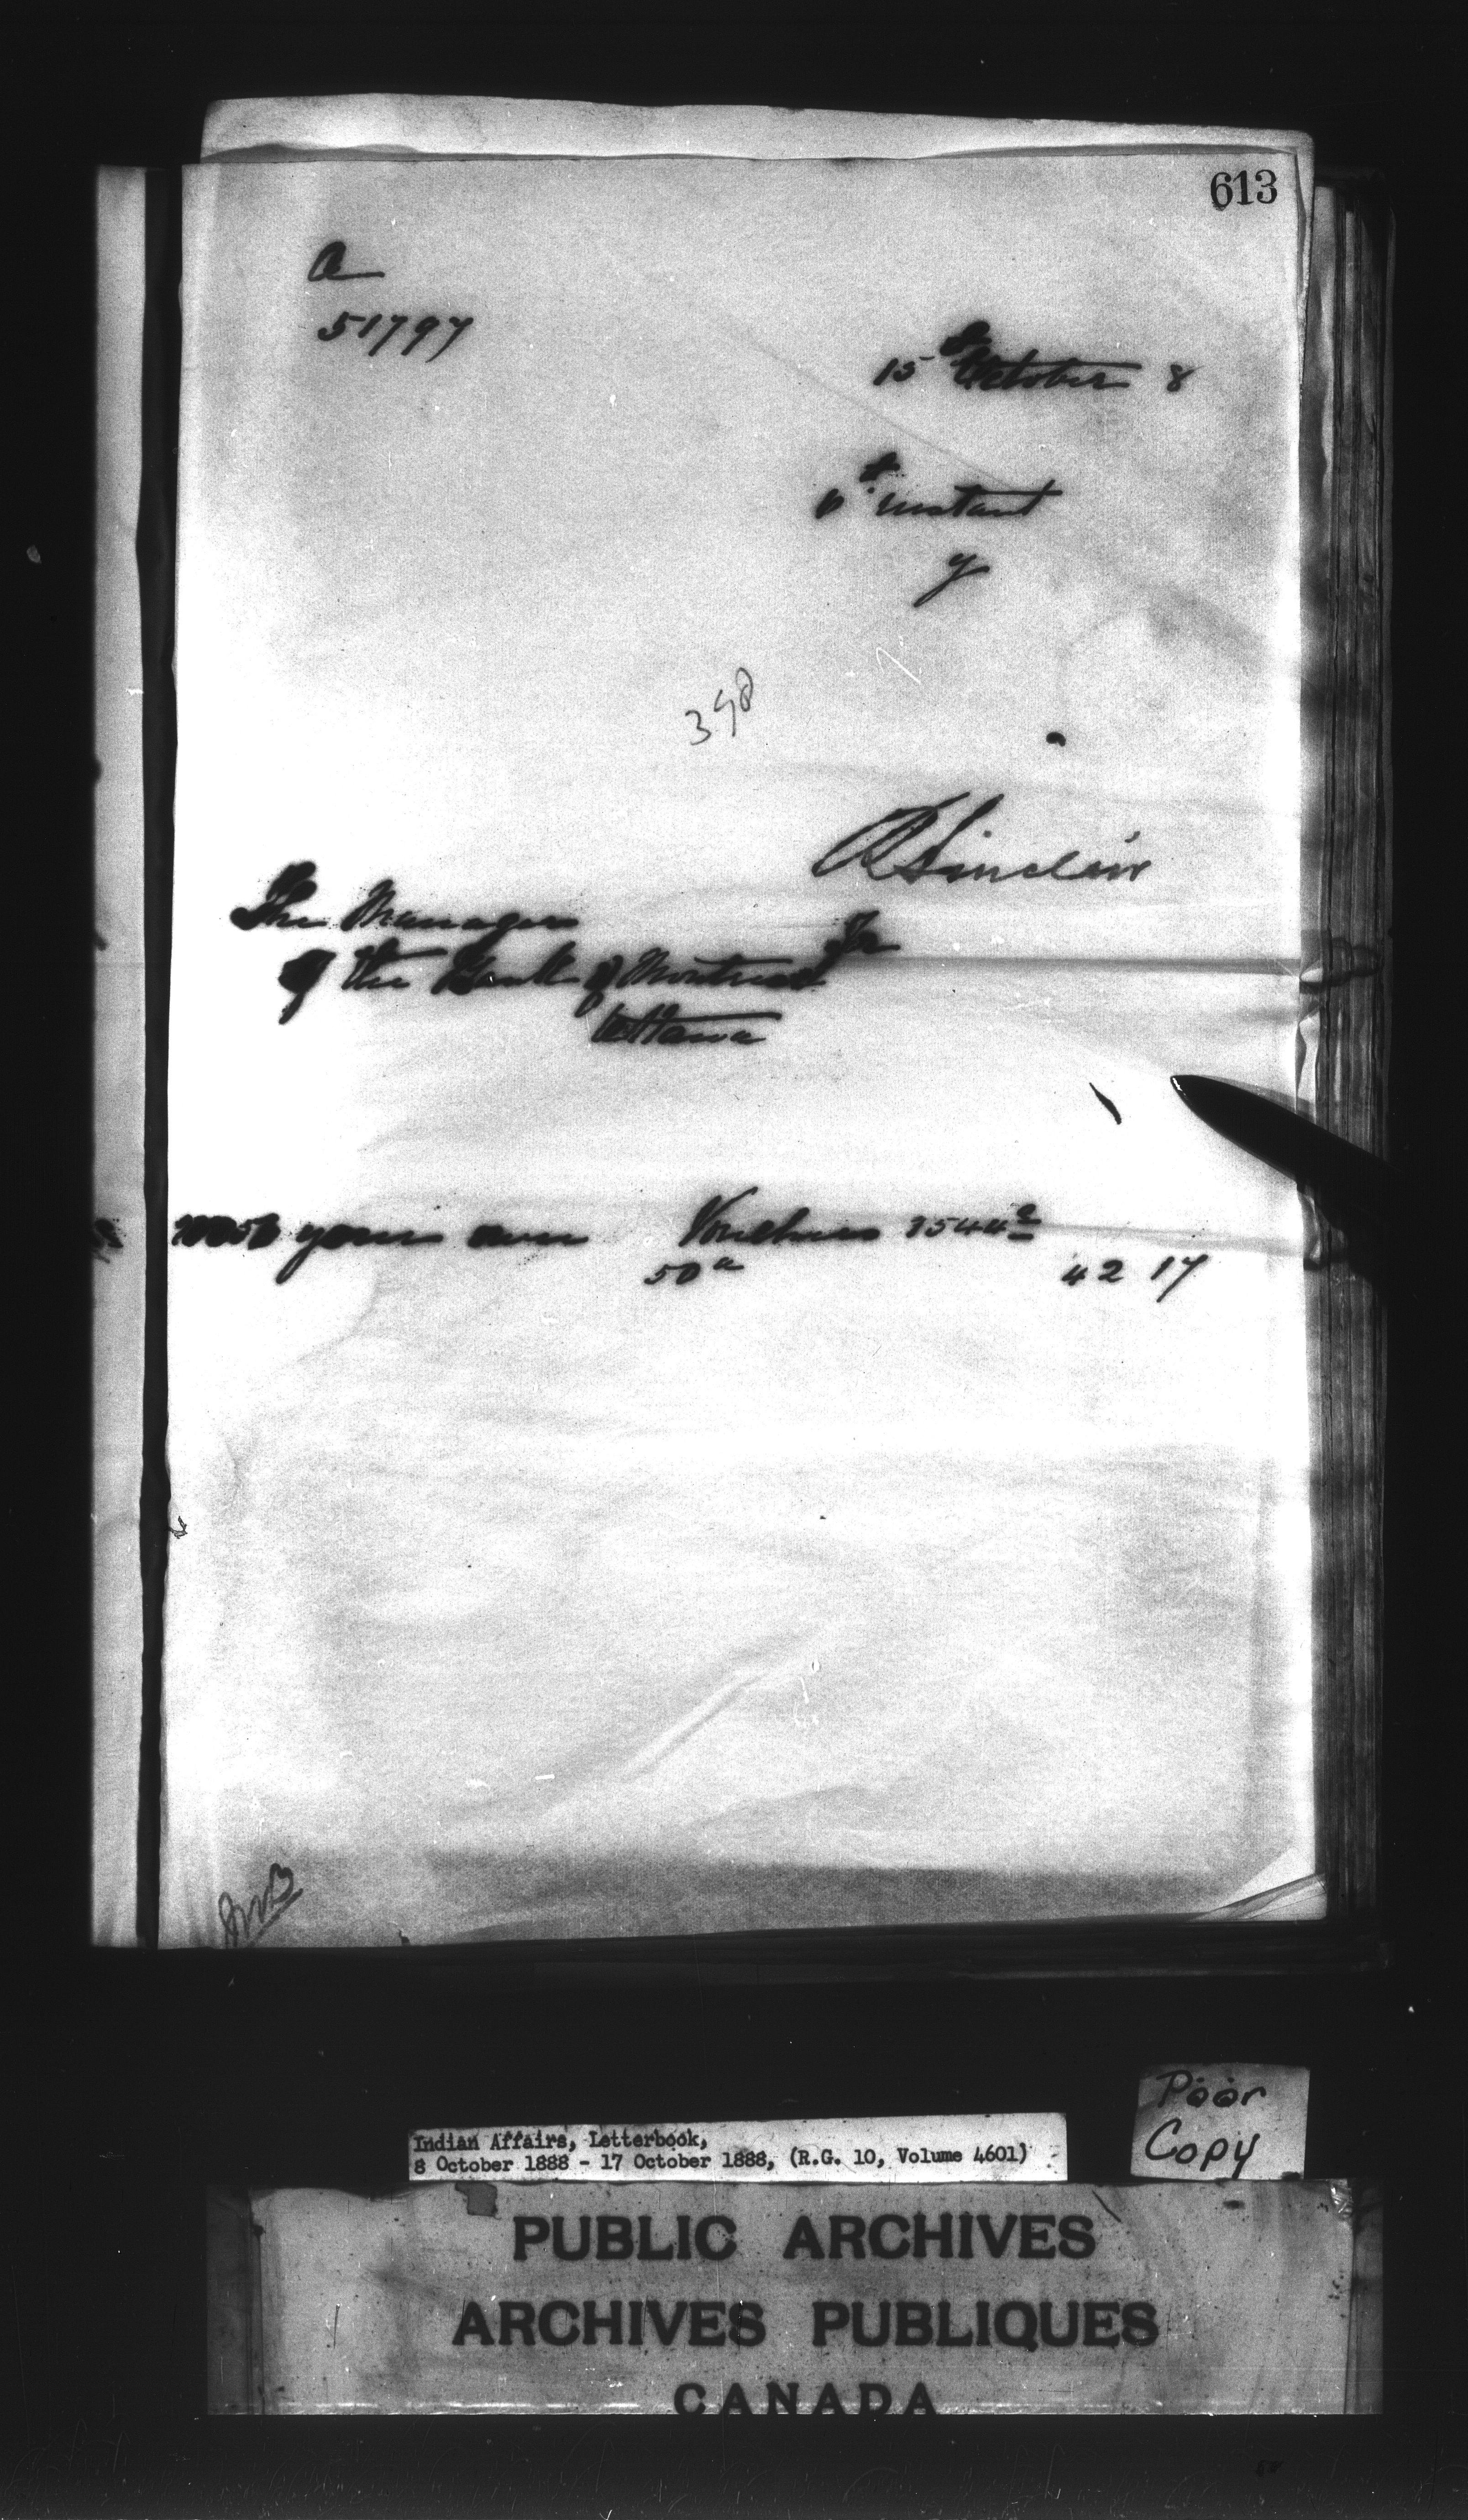 613
a
51797
15th October 8
6th instant
y
398
R Sinclair
The Manager
Jr
of the Bank of Montreal
Ottawa
your own Vouchers 3544a
50a 42 17
Indian Affairs, Letterbook,
8 October 1888 - 17 October 1888, (R.G. 10, Volume 4601)
Poor
Copy
PUBLIC ARCHIVES
ARCHIVES PUBLIQUES
CANADA